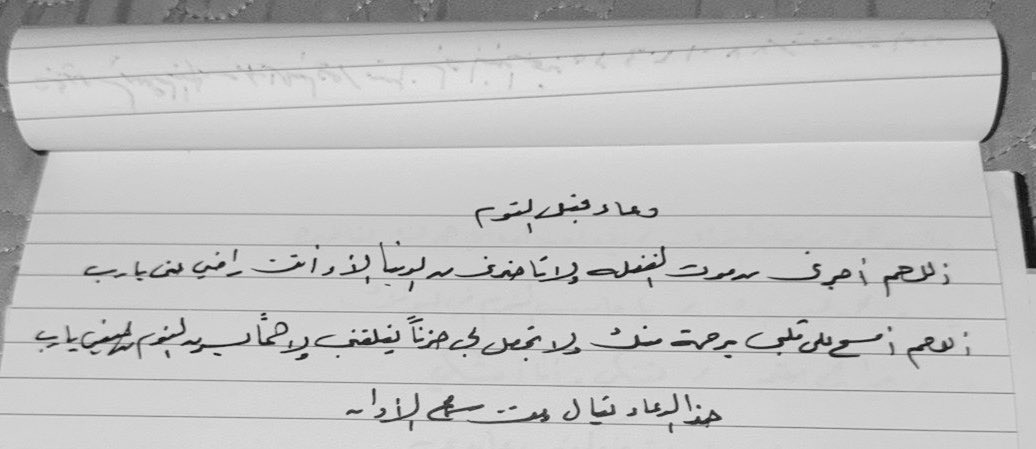 دعاء قبل النوم
اللهم أجرني من موت الغفله ولا تأخذني من الدنيا إلا وأنت راضي عني يارب
اللهم أمسح على قلبي برحمة منك ولا تجعل لي حزناً يقلقني ولا هماً يسرق النوم من عيني يارب
هذا الدعاء يقال وقت الأذان